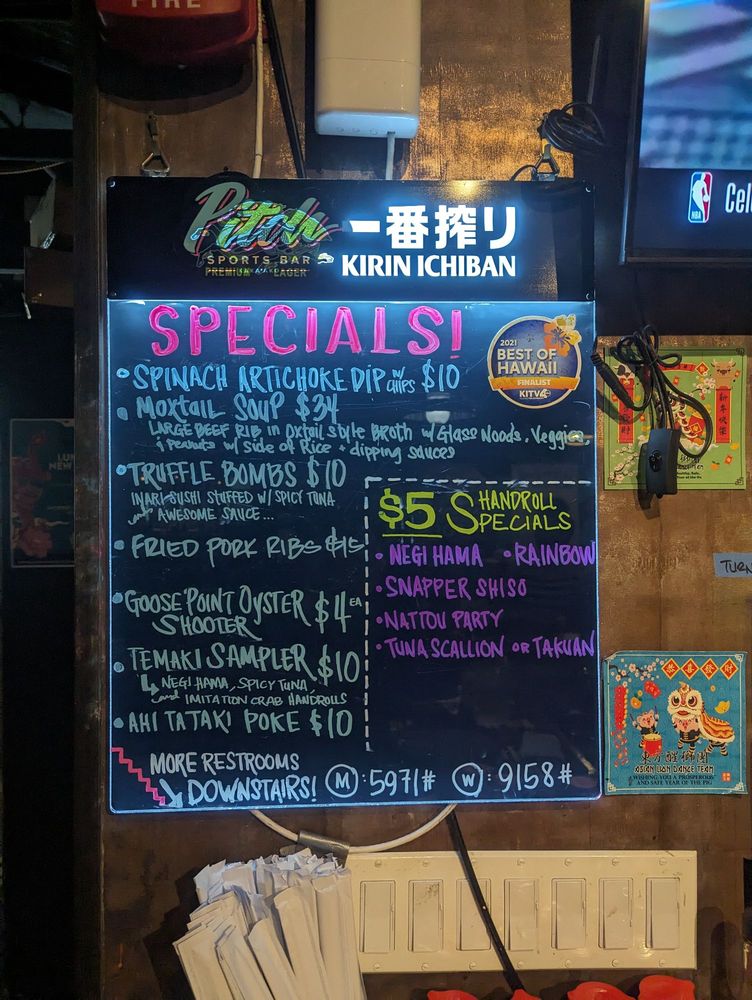 FIRE
Pitch
SPORTS BAR
PREMIUM LAGER
一番搾り
KIRIN ICHIBAN
NBA
Cel
SPECIALS!
2021
BEST OF
HAWAII
FINALIST
KITV4
• SPINACH ARTICHOKE DIP W/ CHIPS $10
• MOXTAIL SOUP $34
LARGE BEEF RIB IN OXTAIL STYLE BROTH W/ GLASS NOODS, VEGGIES
& PEANUTS W/ SIDE OF RICE + DIPPING SAUCES
• TRUFFLE BOMBS $10
INARI SUSHI STUFFED W/ SPICY TUNA
and AWESOME SAUCE...
• FRIED PORK RIBS $15
• GOOSE POINT OYSTER SHOOTER $4 EA
• TEMAKI SAMPLER $10
NEGI HAMA, SPICY TUNA,
and IMITATION CRAB HANDROLLS
• AHI TATAKI POKE $10
$5 HANDROLL SPECIALS
• NEGI HAMA • RAINBOW
• SNAPPER SHISO
• NATTOU PARTY
• TUNA SCALLION OR TAKUAN
MORE RESTROOMS
DOWNSTAIRS! M: 5971# W: 9158#
新年快樂
TURN
恭喜發財
東方醒獅團
ASIAN LION DANCE TEAM
WISHING YOU A PROSPEROUS
AND SAFE YEAR OF THE PIG